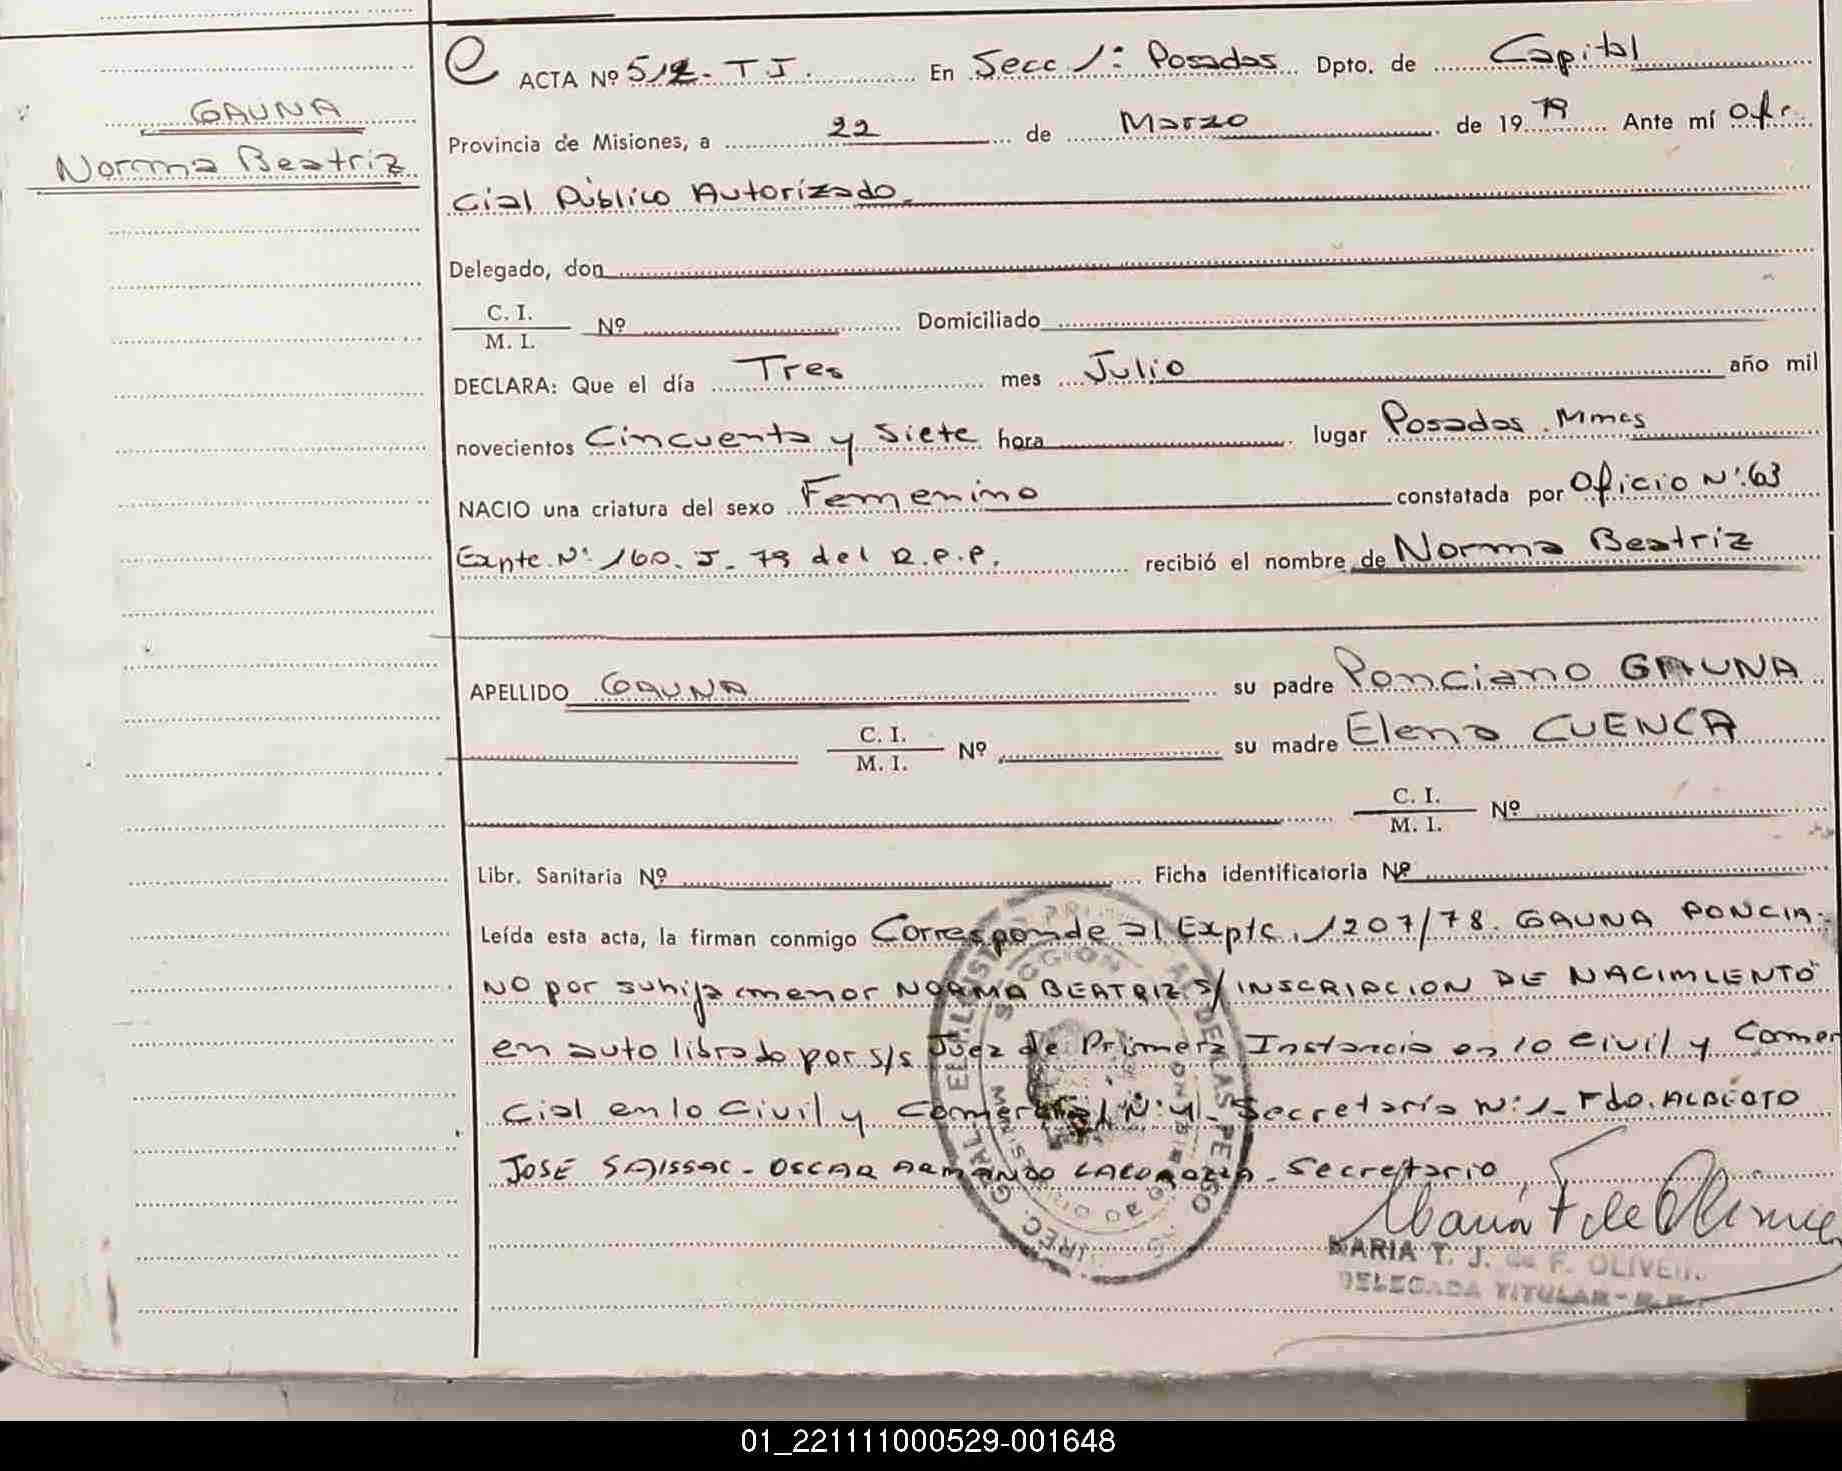 GAUNA
Norma Beatriz
e ACTA Nº 512 - T J. En Secc 1: Posadas Dpto. de Capital
Provincia de Misiones, a 22 de Marzo de 1979 Ante mí Ofi-
cial Público Autorizado.
Delegado, don
C. I.
M. I. Nº Domiciliado
DECLARA: Que el día Tres mes Julio año mil
novecientos Cincuenta y Siete hora lugar Posadas. Mnes
NACIO una criatura del sexo Femenino constatada por Oficio Nº 63
Expte. Nº 160. J - 79 del R.P.P. recibió el nombre de Norma Beatriz
APELLIDO GAUNA su padre Ponciano GAUNA
C. I.
M. I. Nº su madre Elena CUENCA
C. I.
M. I. Nº
Libr. Sanitaria Nº Ficha identificatoria Nº
Leída esta acta, la firman conmigo Corresponde al Expte. 1207/78. GAUNA PONCIA-
NO por su hija menor NORMA BEATRIZ S/ INSCRIPCION DE NACIMIENTO"
en auto librado por s/s Juez de Primera Instancia en lo Civil y Comer
cial en lo Civil y Comercial Nº 4 - Secretaría Nº 1 - Fdo. ALBERTO
JOSÉ SAISSAC - OSCAR ARMANDO - Secretario
MARIA T. J. de F. OLIVE
DELEGADA TITULAR -
SECCION
01_221111000529-001648